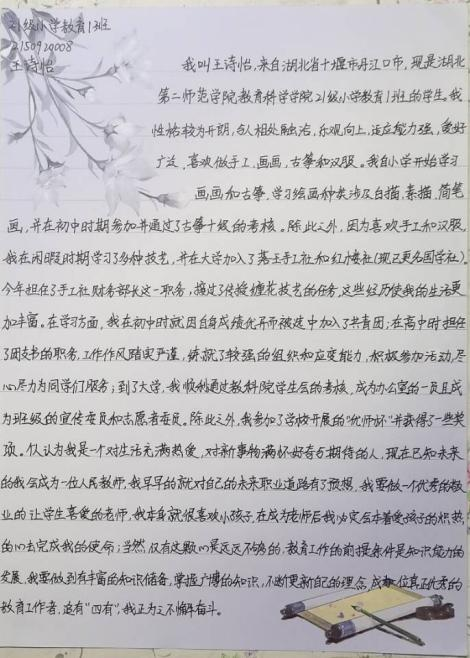 21级小学教育1班
2150920008
王诗怡
我叫王诗怡,来自湖北省十堰市丹江口市,现是湖北
第二师范学院教育科学学院21级小学教育1班的学生。我
性格较为开朗,与人相处融洽,乐观向上,适应能力强,爱好
广泛,喜欢做手工,画画,古筝和汉服。我自小学开始学习
画画和古筝,学习绘画种类涉及白描,素描,简笔
画,并在初中时期参加并通过了古筝十级的考核。除此之外,因为喜欢手工和汉服,
我在闲暇时期学习了多种技艺,并在大学加入了手工社和红楼社(现已更名国学社)。
今年担任了手工社财务部长这一职务,接过了传授缠花技艺的任务,这些经历使我的生活更
加丰富。在学习方面,我在初中时就因自身成绩优异而被选中加入了共青团;在高中时担任
了团支书的职务,工作作风踏实严谨,铸就了较强的组织和应变能力,积极参加活动,尽
心尽力为同学们服务;到了大学,我顺利通过教科院学生会的考核,成为办公室的一员且成
为班级的宣传委员和志愿者委员。除此之外,我参加了学校开展的“优师杯”并获得了一些奖
项。仅认为我是一个对生活充满热爱,对新事物满怀好奇与期待的人,现在已知未来
的我会成为一位人民教师,我早早的就对自己的未来职业道路有了预想,我要做一个优秀的敬
业的让学生喜爱的老师,我本身就很喜欢小孩子,在成为老师后我必定会本着爱孩子的炽热
的心去完成我的使命;当然,仅有这颗心是远远不够的,教育工作的前提条件是知识能力的
发展,我要做到有丰富的知识储备,掌握广博的知识,不断更新自己的理念,成为一位真正优秀的
教育工作者,追有“四有”,我正为之不懈奋斗。